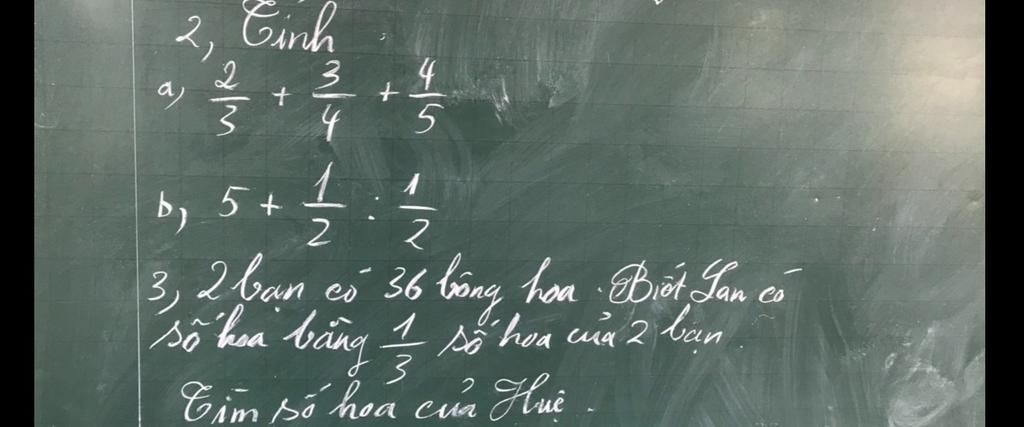 2, Tính
a, 2/3 + 3/4 + 4/5
b, 5 + 1/2 : 1/2
3, 2 bạn có 36 bông hoa. Biết Lan có
số hoa bằng 1/3 số hoa của 2 bạn.
Tìm số hoa của Huệ.